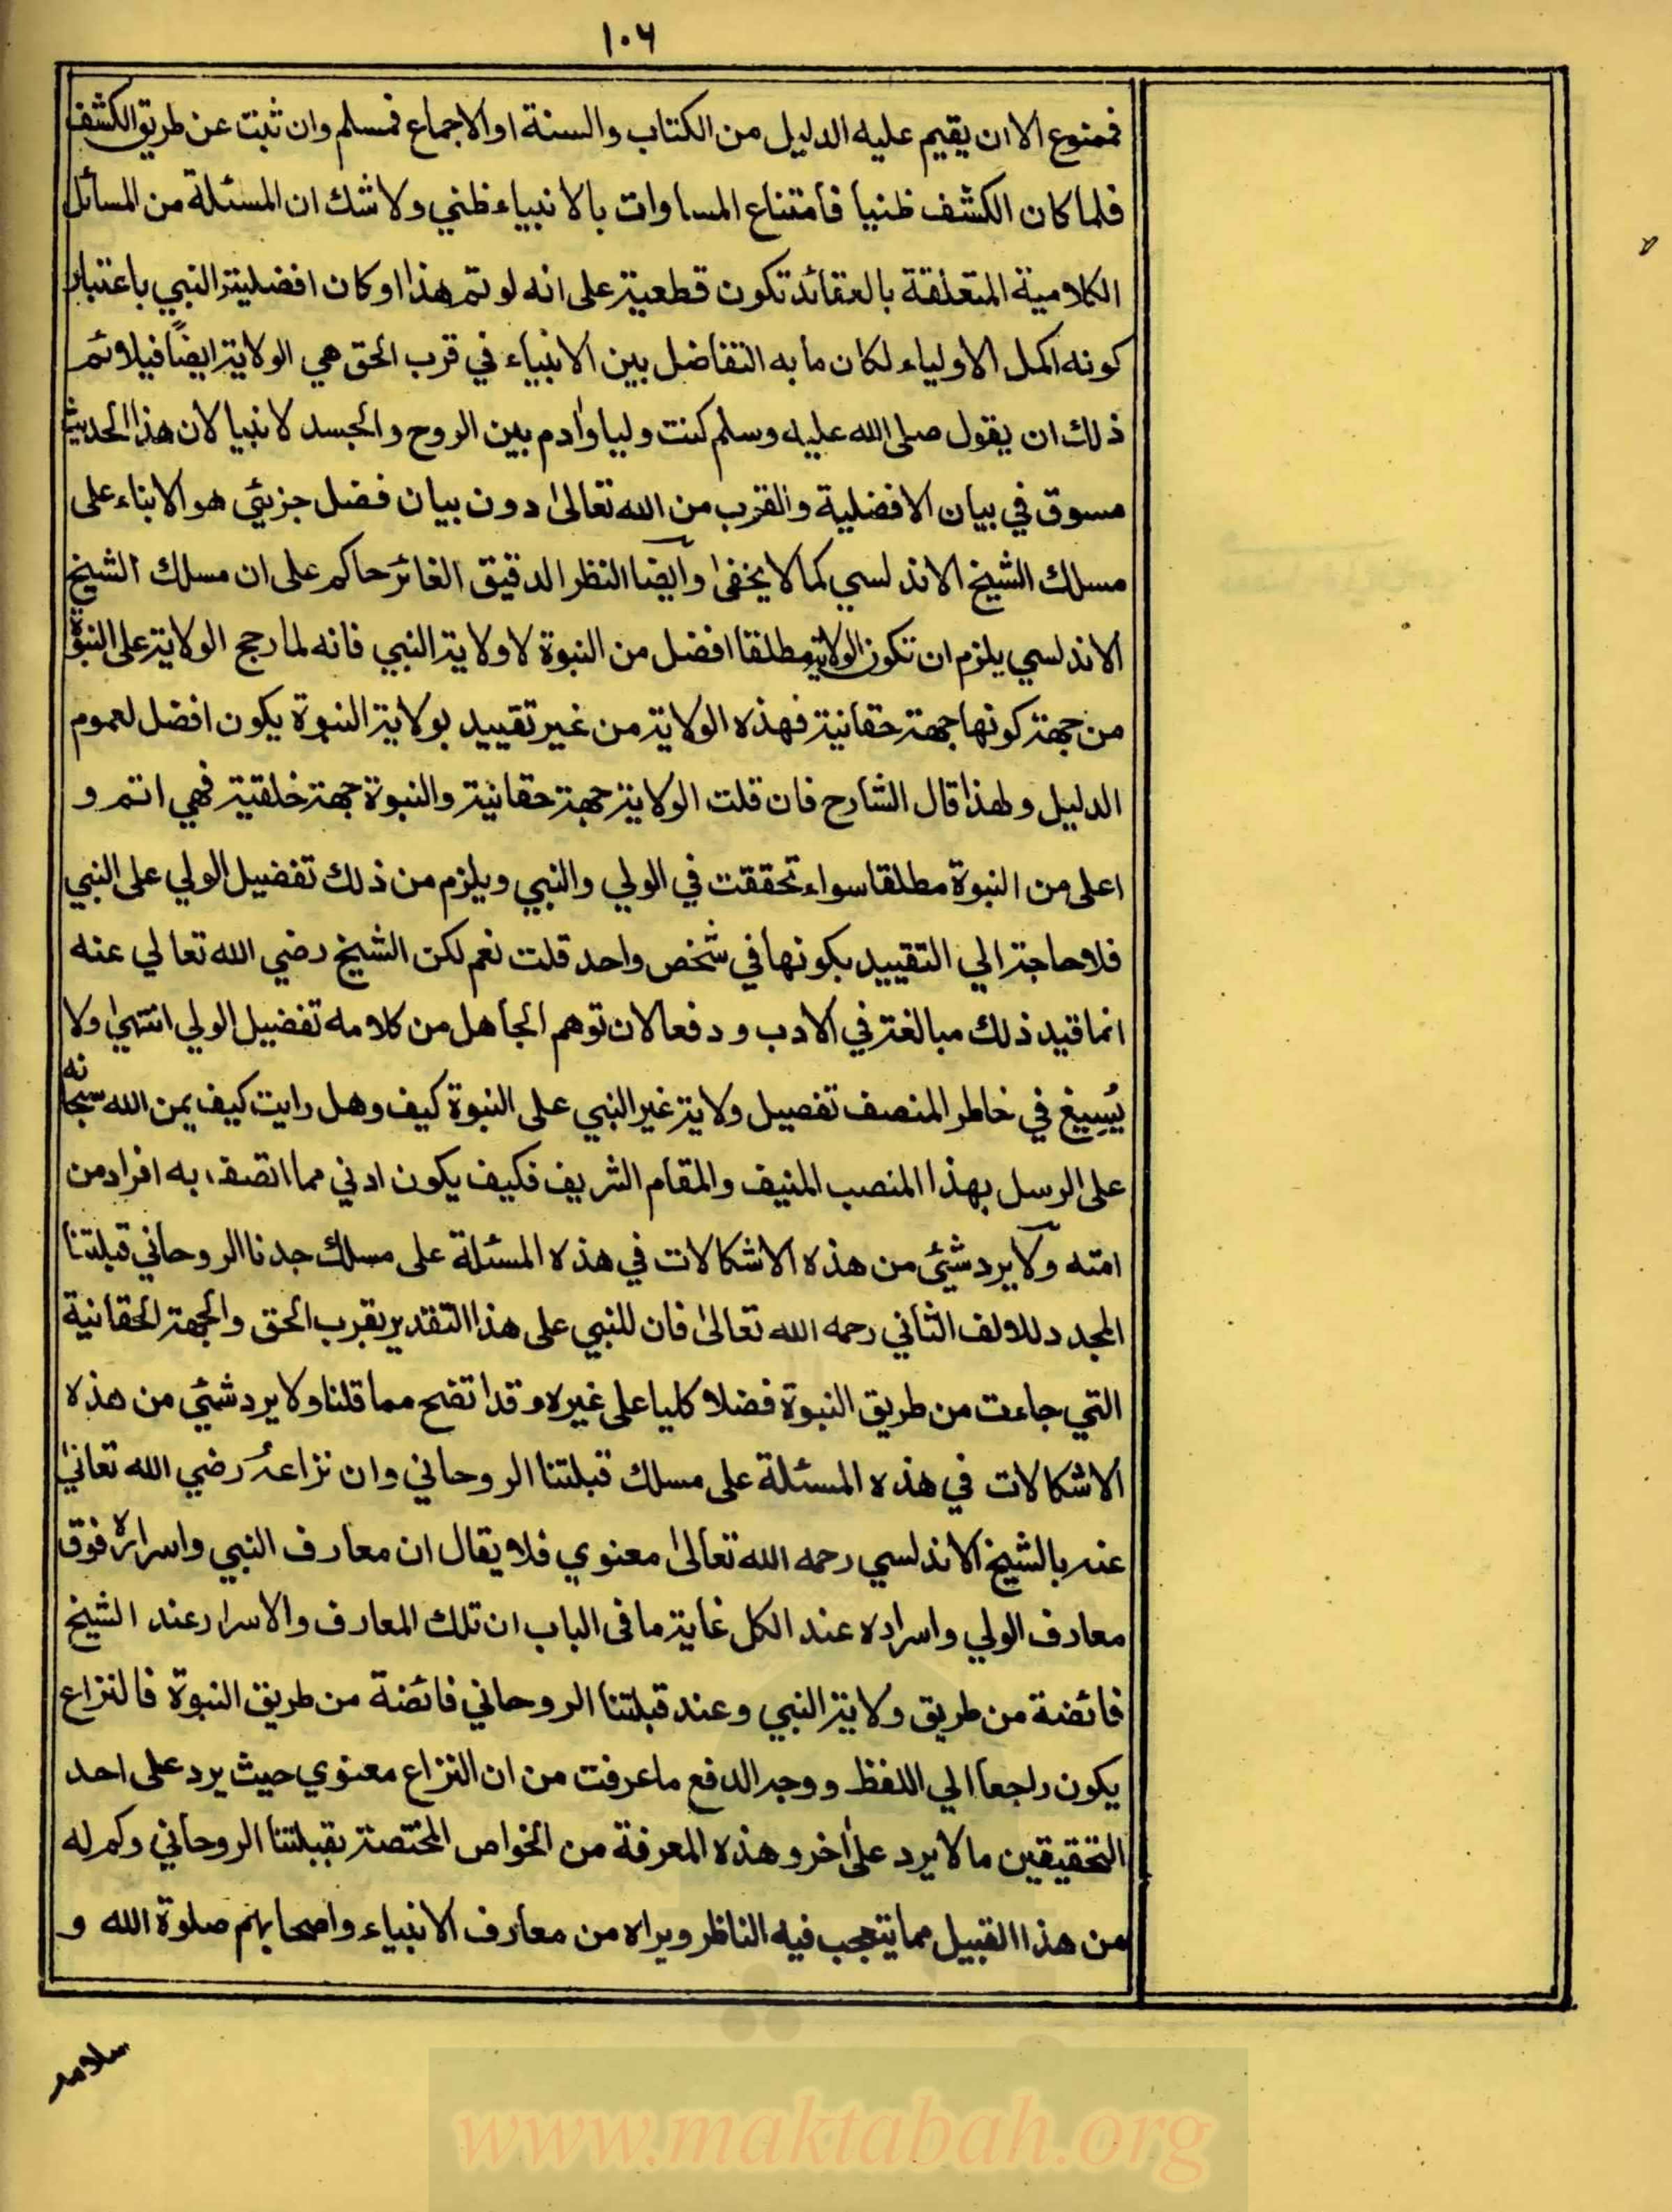 ١٠٦
فممنوع الا ان يقيم عليه الدليل من الكتاب والسنة او الاجماع فمسلم وان ثبت عن طريق الكشف
فلما كان الكشف ظنيا فامتناع المساوات بالانبياء ظني ولا شك ان المسئلة من المسائل
الكلامية المتعلقة بالعقائد تكون قطعية على انه لو تم هذا او كان افضلية النبي باعتبار
كونه اكمل الاولياء لكان ما به التفاضل بين الانبياء في قرب الحق هي الولاية ايضًا فيلائم
ذلك ان يقول صلى الله عليه وسلم كنت وليا وآدم بين الروح والجسد لا نبيا لان هذا الحديث
مسوق في بيان الافضلية والقرب من الله تعالى دون بيان فضل جزئي هو الابناء على
مسلك الشيخ الاندلسي كما لا يخفى وايضا النظر الدقيق الغائر حاكم على ان مسلك الشيخ
الاندلسي يلزم ان تكون الولاية مطلقا افضل من النبوة لا ولاية النبي فانه لما رجح الولاية على النبوة
من جهة كونها جهة حقانية فهذه الولاية من غير تقييد بولاية النبوة يكون افضل لعموم
الدليل ولهذا قال الشارح فان قلت الولاية جهة حقانية والنبوة جهة خلقية فهي اتم و
اعلى من النبوة مطلقا سواء تحققت في الولي والنبي ويلزم من ذلك تفضيل الولي على النبي
فلا حاجة الي التقييد بكونها في شخص واحد قلت نعم لكن الشيخ رضي الله تعالي عنه
انما قيد ذلك مبالغة في الادب و دفعا لان توهم الجاهل من كلامه تفضيل الولي انتهى ولا
يُسيغ في خاطر المنصف تفصيل ولاية غير النبي على النبوة كيف وهل رايت كيف يمن الله سبحانه
على الرسل بهذا المنصب المنيف والمقام الشريف فكيف يكون ادني مما اتصف به افراد من
امته ولا يرد شيئ من هذه الاشكالات في هذه المسئلة على مسلك جدنا الروحاني قبلتنا
المجدد للالف الثاني رحمه الله تعالى فان للنبي على هذا التقدير بقرب الحق والجهة الحقانية
التي جاءت من طريق النبوة فضلا كليا على غيره وقد اتضح مما قلنا ولا يرد شيئ من هذه
الاشكالات في هذه المسئلة على مسلك قبلتنا الروحاني وان نزاعهُ رضي الله تعالى
عنه بالشيخ الاندلسي رحمه الله تعالى معنوي فلا يقال ان معارف النبي واسراره فوق
معارف الولي واسراره عند الكل غاية ما في الباب ان تلك المعارف والاسرار عند الشيخ
فائضة من طريق ولاية النبي وعند قبلتنا الروحاني فائضة من طريق النبوة فالنزاع
يكون راجعا الي اللفظ و وجه الدفع ما عرفت من ان النزاع معنوي حيث يرد على احد
التحقيقين ما لا يرد على آخر و هذه المعرفة من الخواص المختصة بقبلتنا الروحاني وكم له
من هذا القبيل مما يتعجب فيه الناظر ويراه من معارف الانبياء واصحابهم صلوة الله و
سلامه
www.maktabah.org